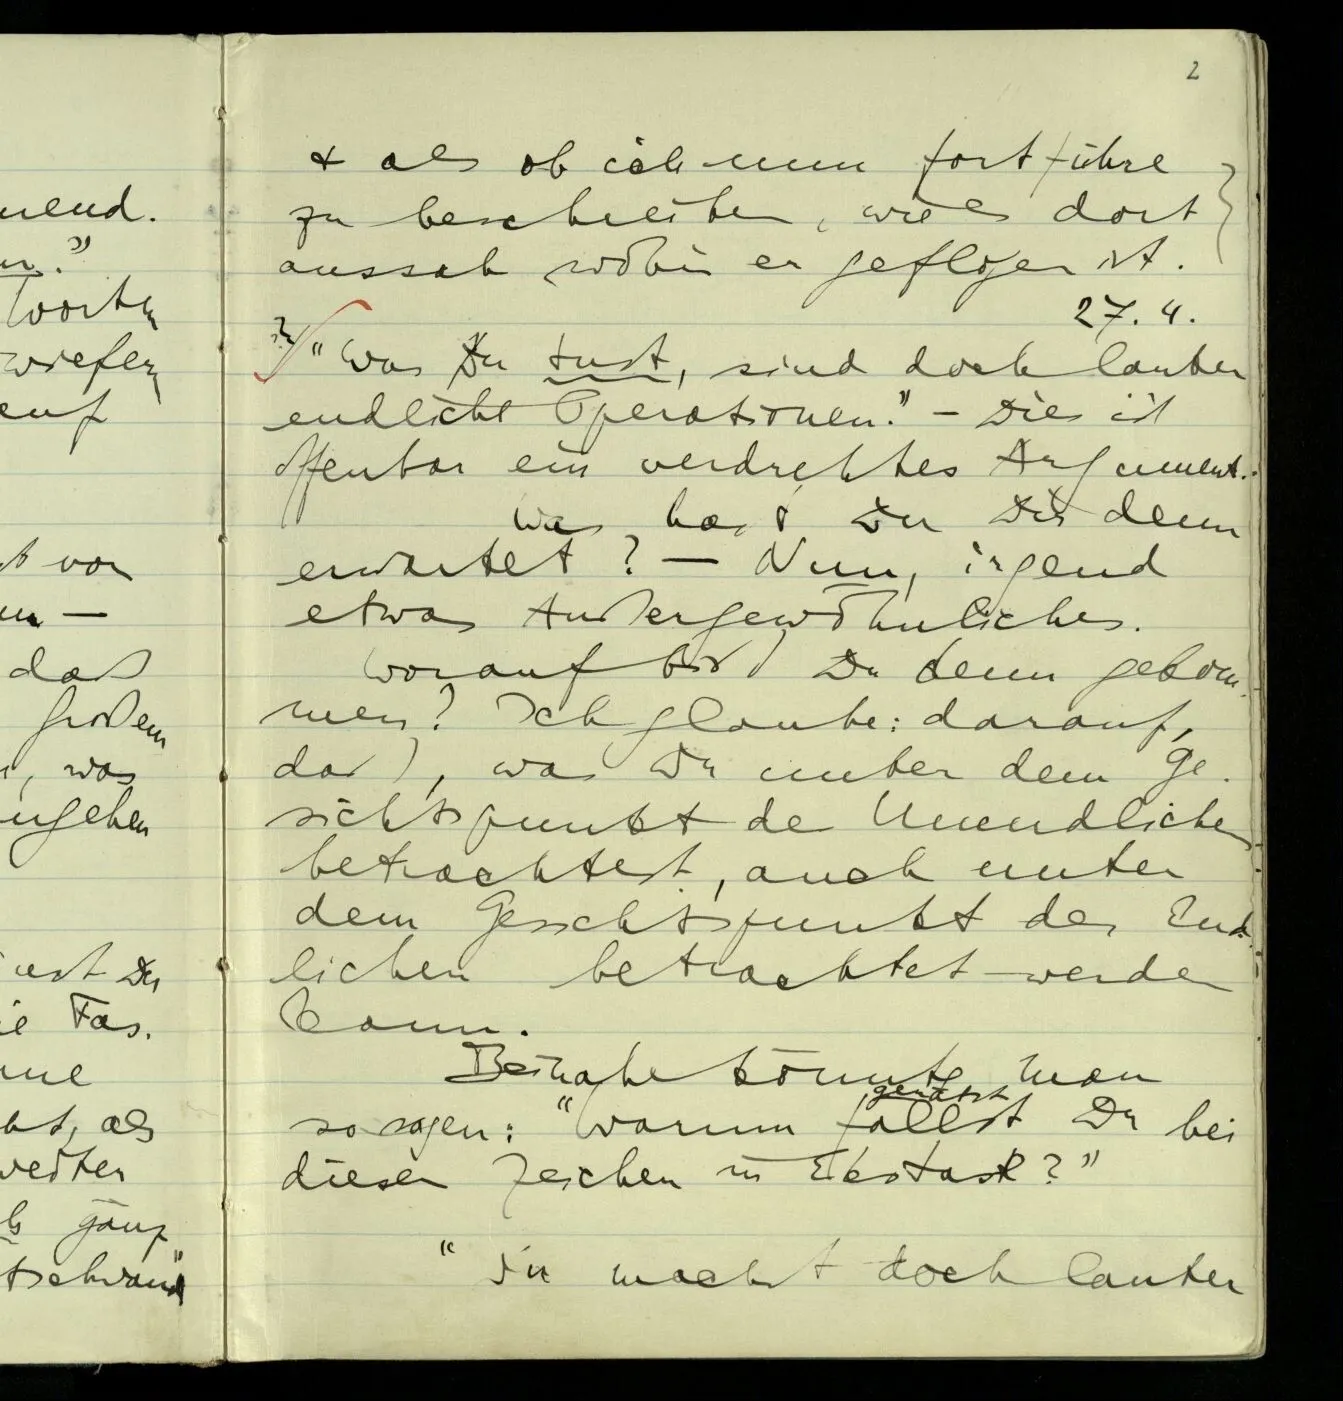 2
& als ob ich nun fortführe
zu beschreiben, wie es dort
aussah wohin er geflogen ist.
27. 4.
? "Was Du tust, sind doch lauter
endliche Operationen." – Dies ist
offenbar ein verdrehtes Argument.
Was hast Du Dir denn
erwartet? – Nun, irgend
etwas Außergewöhnliches.
Worauf bist Du denn gekom-
men? Ich glaube: darauf,
daß, was Du unter dem Ge-
sichtspunkt des Unendlichen
betrachtest, auch unter
dem Gesichtspunkt des End-
lichen betrachtet werden
kann.
Beinahe könnte man
so sagen: "Warum fällst Du bei
diesen Zeichen in Ekstase?"
"Du machst doch lauter
nend.
Worten
wiefern
auf
von
–
daß
großen
, was
ngeben
Du
Fas-
als
ganz